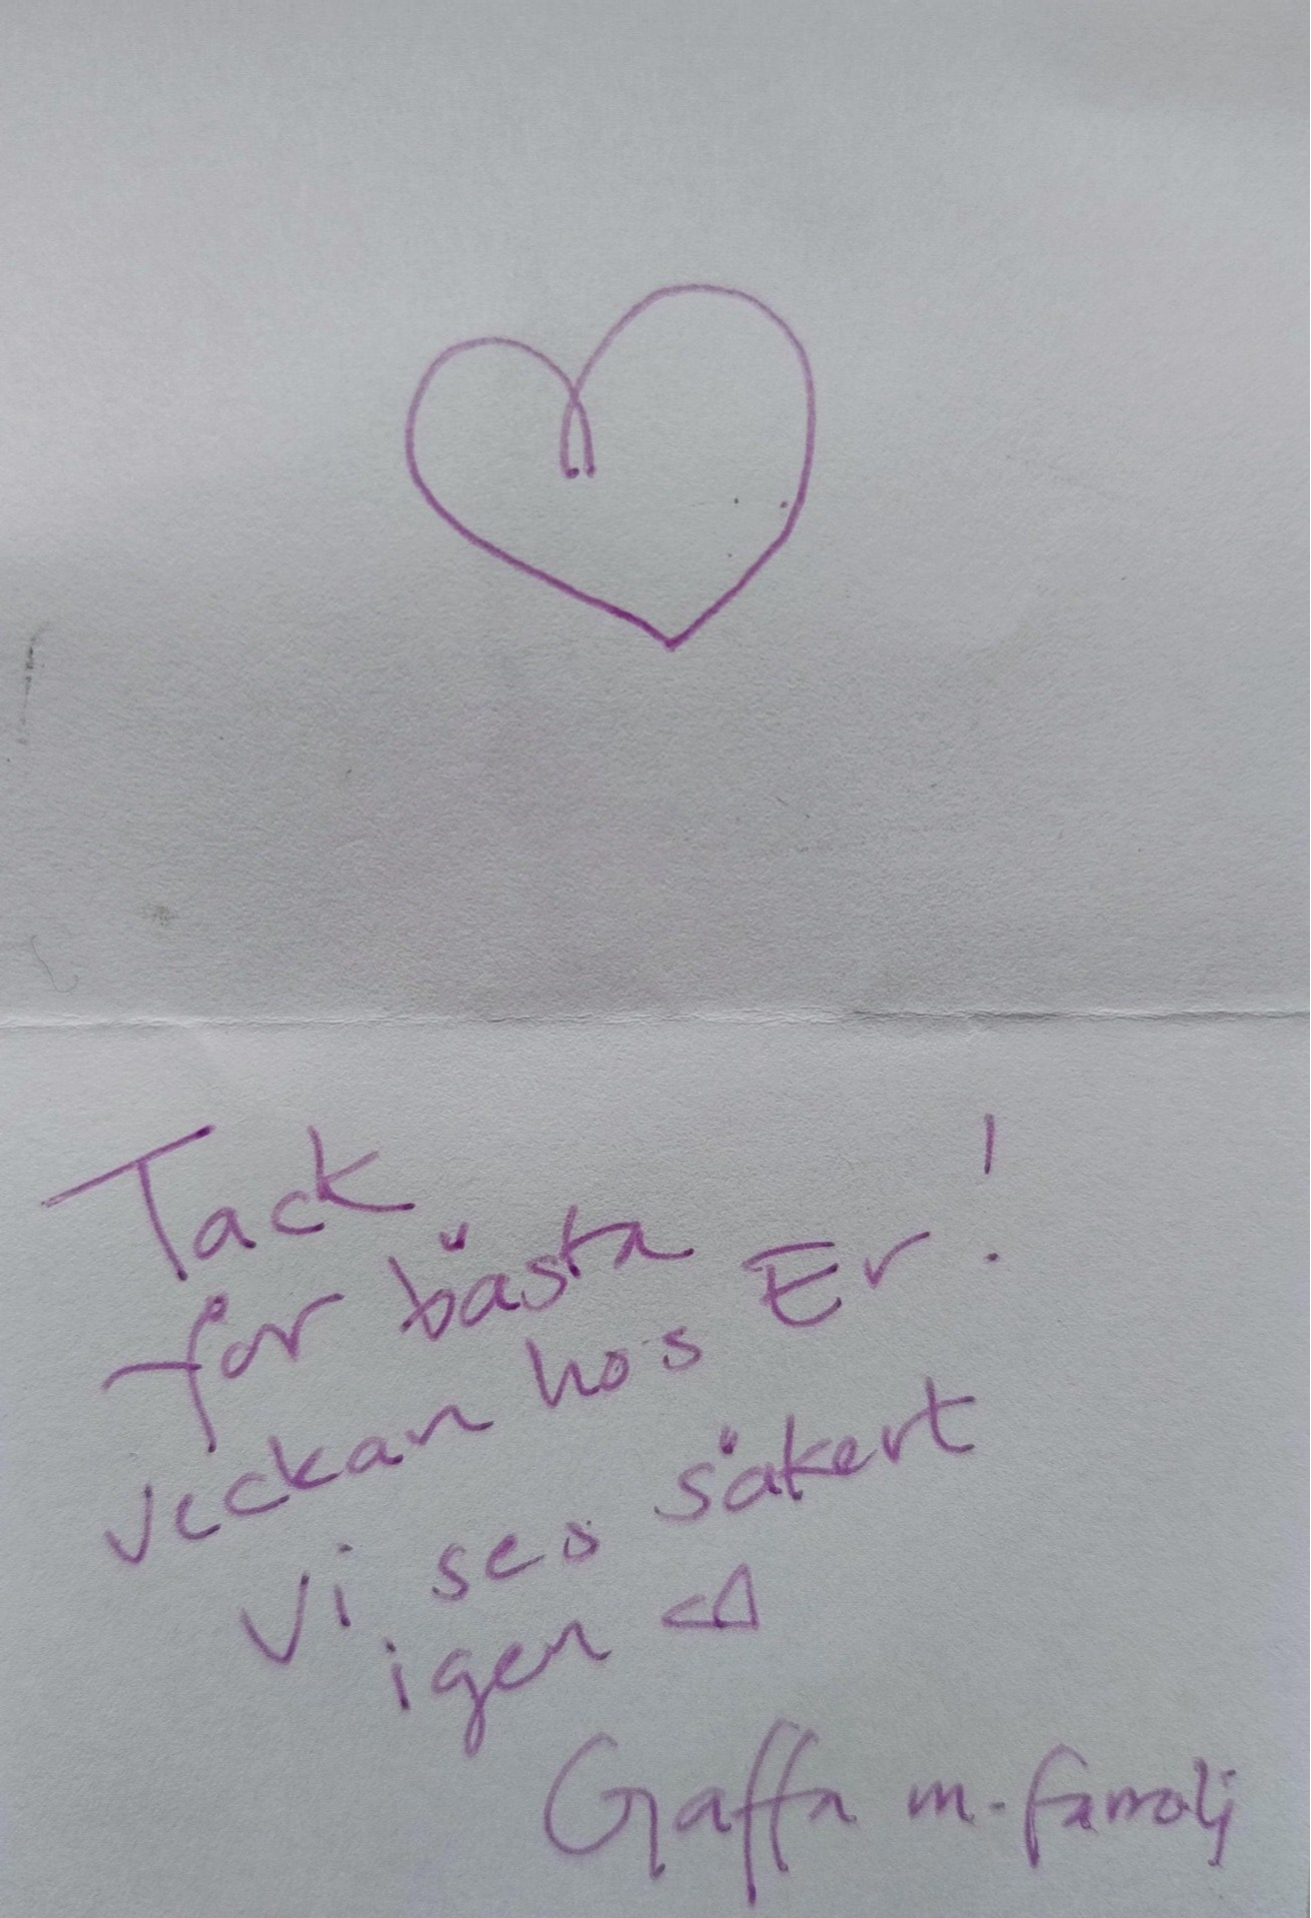 Tack
för bästa
veckan hos Er!
Vi ses säkert
igen
Gaffa m. familj